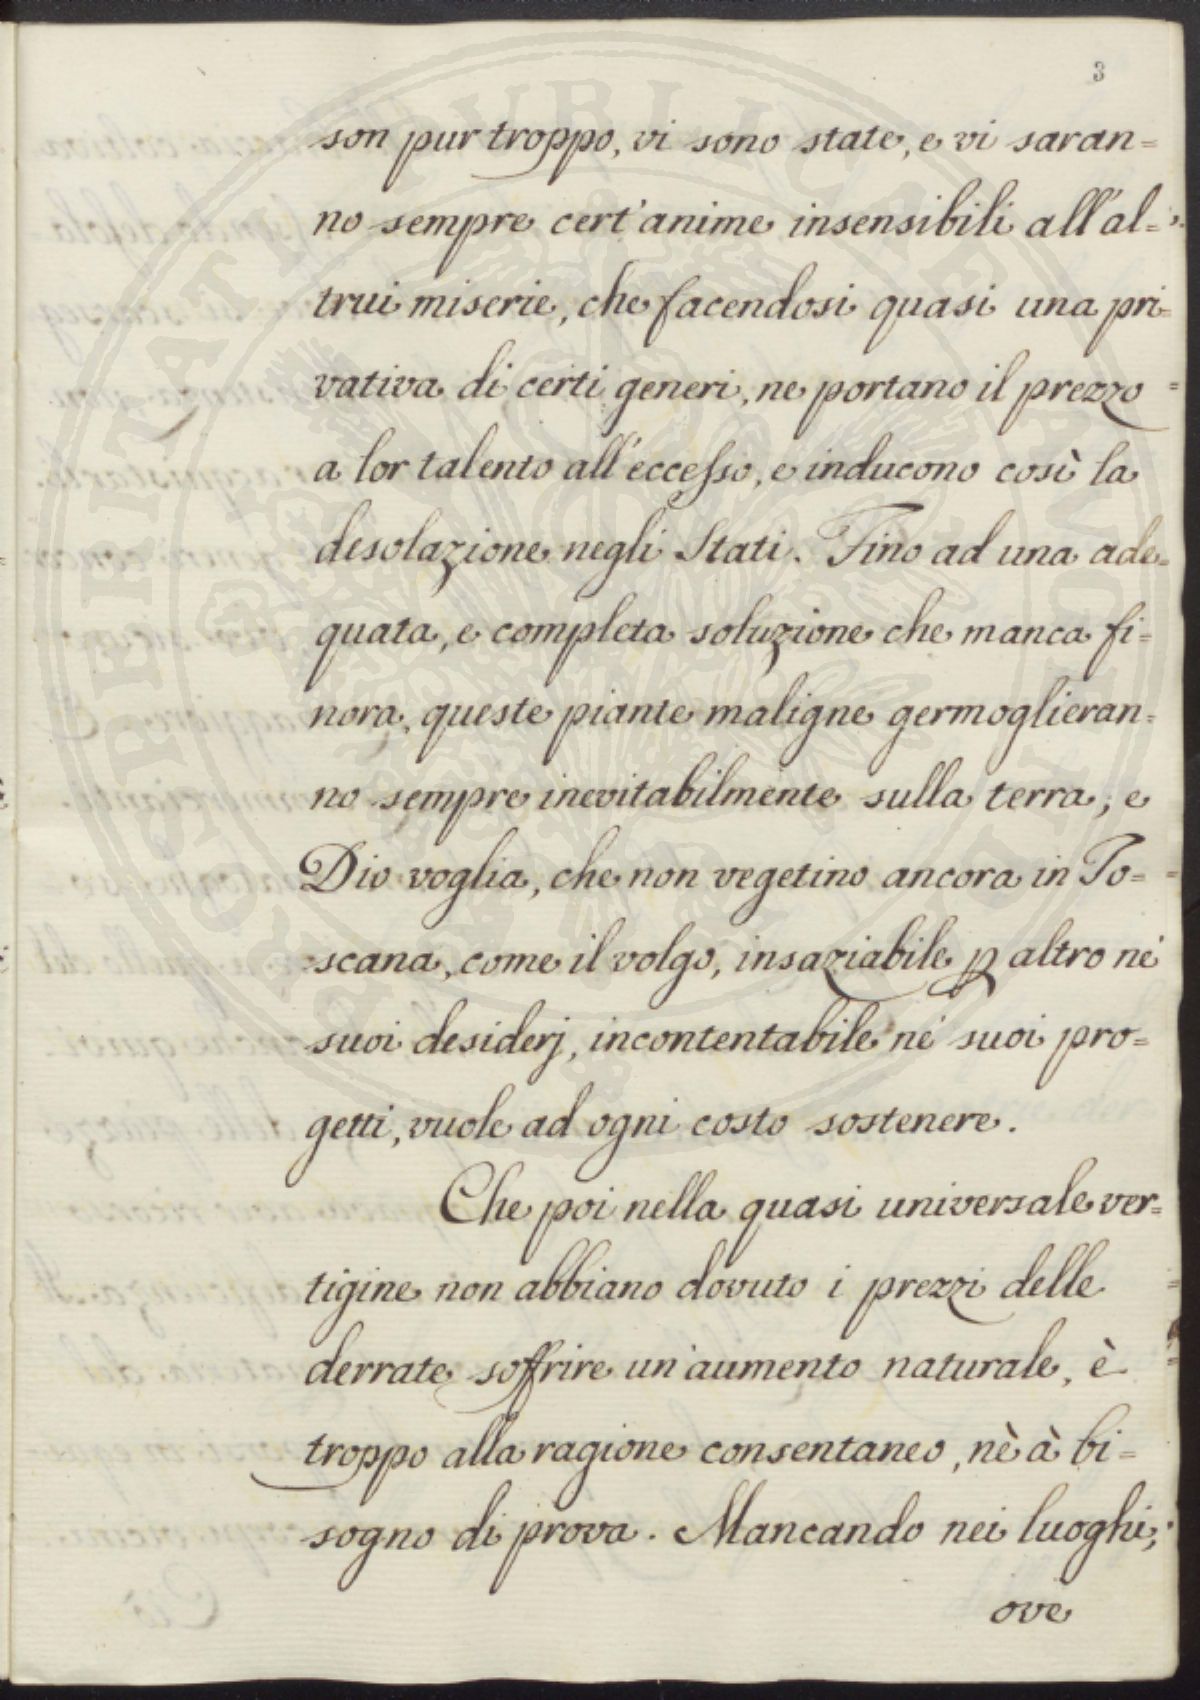 3
son pur troppo, vi sono state, e vi saran=
no sempre cert'anime insensibili all'al=
trui miserie, che facendosi quasi una pri=
vativa di certi generi, ne portano il prezzo
a lor talento all'eccesso, e inducono così la
desolazione negli Stati. Fino ad una ade=
quata, e completa soluzione che manca fi=
nora, queste piante maligne germoglieran=
no sempre inevitabilmente sulla terra; e
Dio voglia, che non vegetino ancora in To=
scana, come il volgo, insaziabile p altro ne'
suoi desiderj, incontentabile ne' suoi pro=
getti, vuole ad ogni costo sostenere.
Che poi nella quasi universale ver=
tigine non abbiano dovuto i prezzi delle
derrate soffrire un'aumento naturale, è
troppo alla ragione consentaneo, nè à bi=
sogno di prova. Mancando nei luoghi,
ove
PROSPERITATI PUBLICAE AUGENDAE